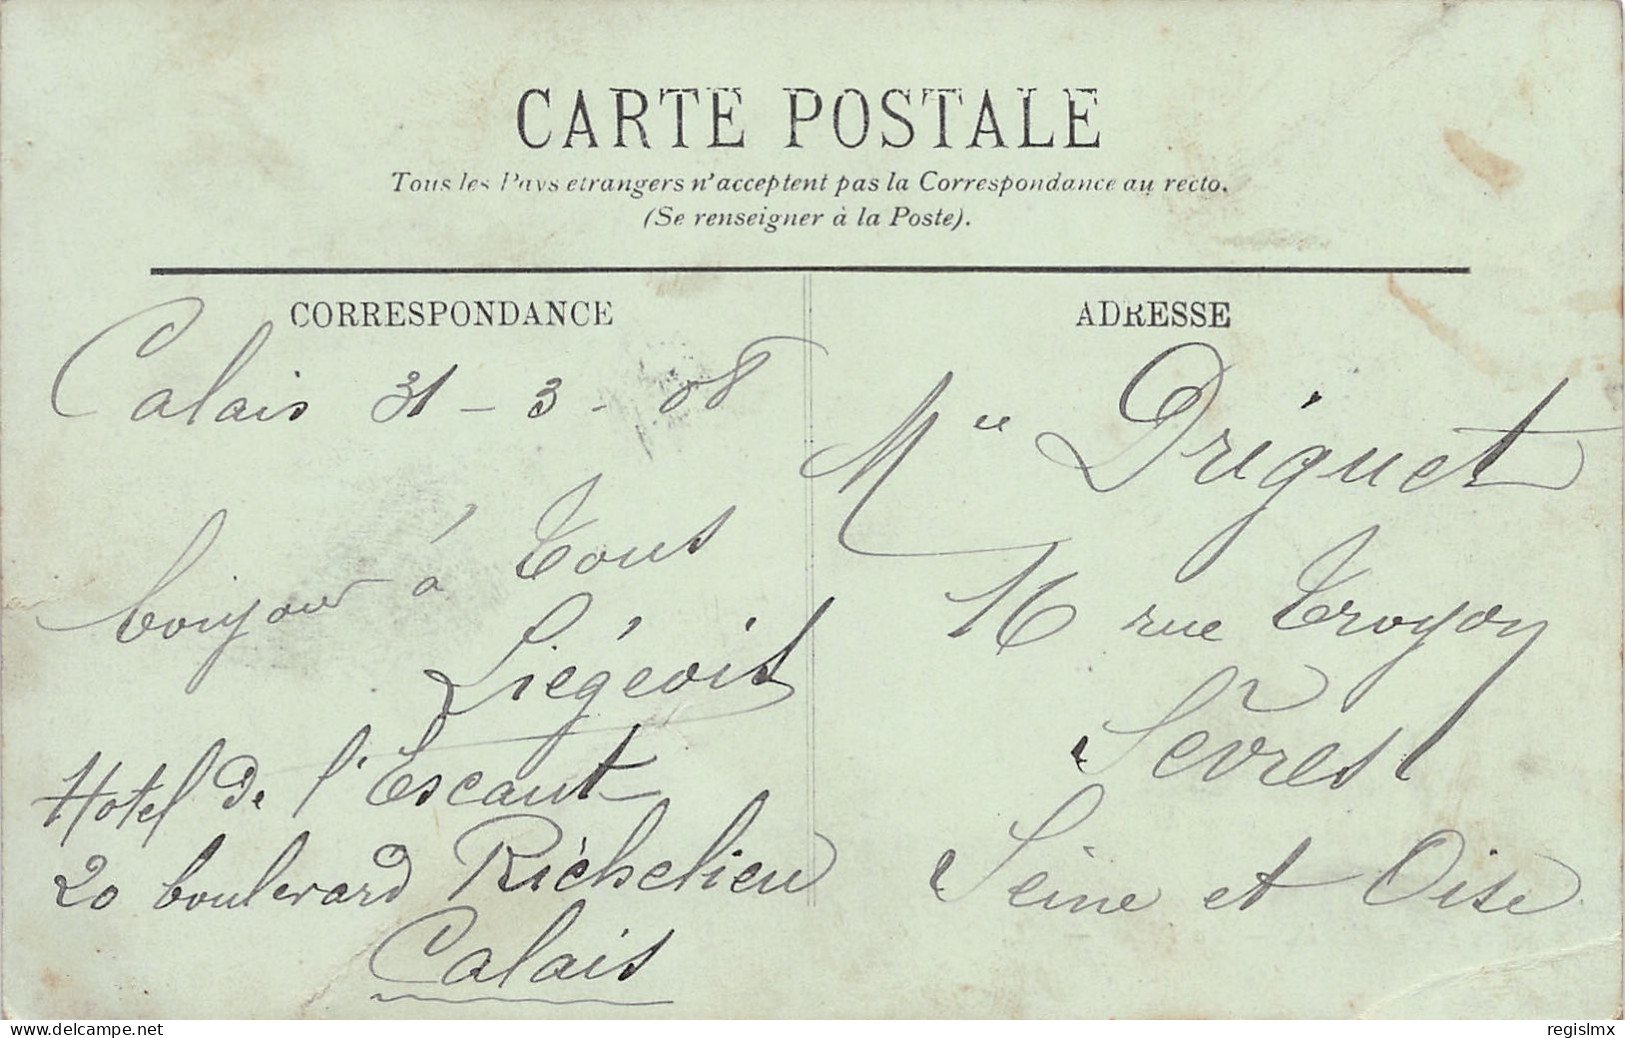 CARTE POSTALE
Tous les Pays etrangers n'acceptent pas la Correspondance au recto.
(Se renseigner à la Poste).
CORRESPONDANCE
Calais 31 - 3 - 08
bonjour à Tous
Liégeois
Hotel de l'Escaut
20 boulevard Richelieu
Calais
ADRESSE
Mlle Driguet
16 rue Troyon
Sèvres
Seine et Oise
www.delcampe.net
regislmx